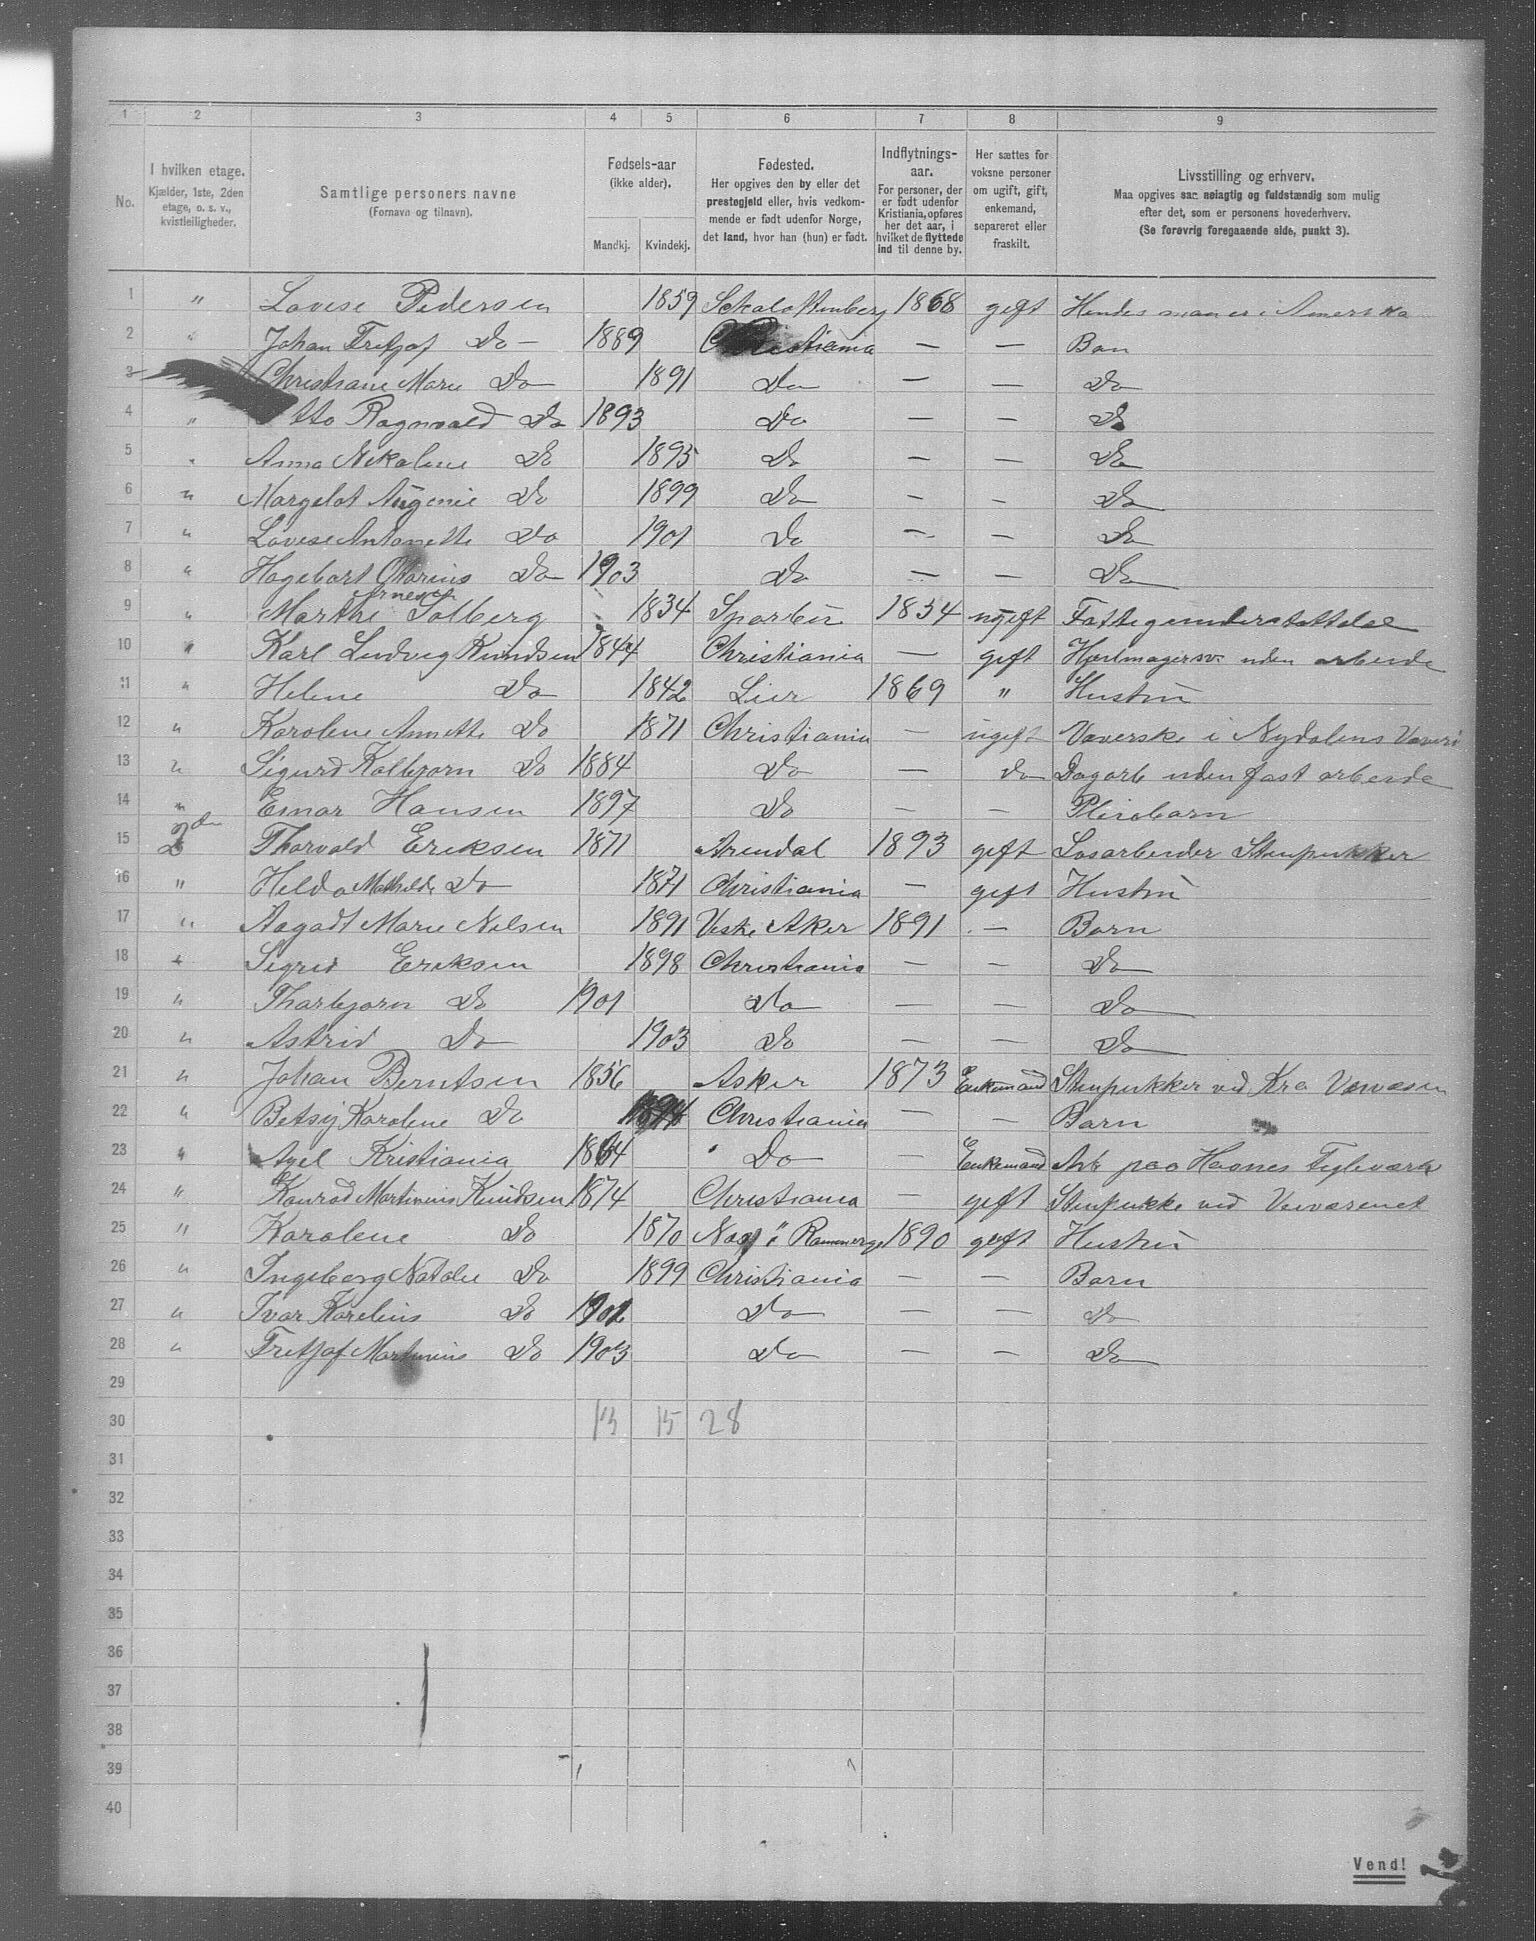 1 2 3 4 5 6 7 8 9
No.
I hvilken etage.
Kjælder, 1ste, 2den
etage, o. s. v.,
kvistleiligheder.
Samtlige personers navne
(Fornavn og tilnavn).
Fødsels-aar
(ikke alder).
Mandkj. Kvindekj.
Fødested.
Her opgives den by eller det
prestegjeld eller, hvis vedkom-
mende er født udenfor Norge,
det land, hvor han (hun) er født.
Indflytnings-
aar.
For personer, der
er født udenfor
Kristiania, opføres
her det aar, i
hvilket de flyttede
ind til denne by.
Her sættes for
voksne personer
om ugift, gift,
enkemand,
separeret eller
fraskilt.
Livsstilling og erhverv.
Maa opgives saa nøiagtig og fuldstændig som mulig
efter det, som er personens hovederhverv.
(Se forøvrig foregaaende side, punkt 3).
1 " Lovise Pedersen 1859 1868 gift Hendes man er i Amerika
2 " Johan Fretjof Do — 1889 Christiania — — Barn
3 Christiane Marie Do 1891 Do — — Do
4 " Otto Ragnvald Do 1893 Do — — Do
5 " Anna Nikoline Do 1895 Do — — Do
6 " Margelot Augenie Do 1899 Do — — Do
7 " Lovise Antonette Do 1901 Do — — Do
8 " Hagebart Otarius Do 1903 Do — — Do
9 " Marthe Arnesen Solberg 1834 Sparbu 1854 ugift Fattigunderstøttelse
10 " Karl Ludvig Knudsen 1844 Christiania — gift Hjulmagersv. uden arbeide
11 " Helene Do 1842 Lier 1869 " Hustru
12 " Karolene Annette Do 1871 Christiania — ugift Væverske i Nydalens Væveri
13 " Sigurd Kolbjørn Do 1884 Do — do Dagarb uden fast arbeide
14 " Einar Hansen 1897 Do — — Pleiebarn
15 2den Thorvald Eriksen 1871 Arendal 1893 gift Løsarbeider Stenpukker
16 " Helda Mathilde Do 1871 Christiania — gift Hustru
17 " Aagodt Marie Nelsen 1891 Vestre Aker 1891 — Barn
18 " Sigrid Eriksen 1898 Christiania — — Do
19 " Thorbjørn Do 1901 Do — — Do
20 " Astrid Do 1903 Do — — Do
21 " Johan Berntsen 1856 Asker 1873 Enkemand Stenpukker ved Kra Veivæsen
22 " Betsy Karolene Do 1894 Christiania — — Barn
23 " Axel Kristiania 1864 Do — Enkemand Arb paa Hasnes Teglværk
24 " Konrad Martinius Knudsen 1874 Christiania — gift Stenpukke ved Veivæsenet
25 " Karolene Do 1870 Næs i Romerge 1890 gift Hustru
26 " Ingeborg Natalie Do 1899 Christiania — — Barn
27 " Ivar Karelius Do 1902 Do — — Do
28 " Fretjof Martinius Do 1903 Do — — Do
29
30 13 15 28
31
32
33
34
35
36
37
38
39
40
Vend!